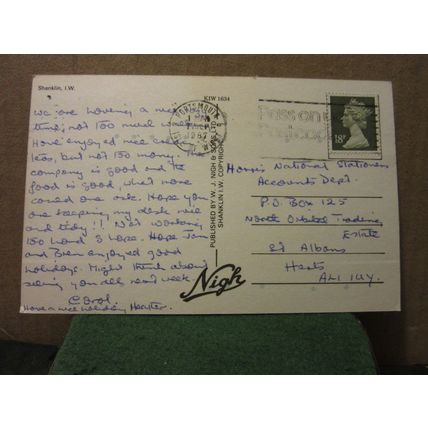 Shanklin, I.W.
KIW 1634
We are having a nice
time, not too much
Have enjoyed
less, but not too many. The
company is good and the
food is good, what more
could one ask. Hope you
are keeping my desk nice
and tidy!! Not working
too hard I hope. Hope
and enjoyed good
holidays. Might think about
seeing you next week
Carol.
Have a nice holiday
PUBLISHED BY W. J. NIGH & SONS LTD
SHANKLIN I.W. COPYRIGHT
Nigh
PORTSMOUTH
1987
Pass on
18P
National Stationers
Accounts Dept.
P.O. Box 125
North Orbital Trading
Estate
St Albans
Herts
AL1